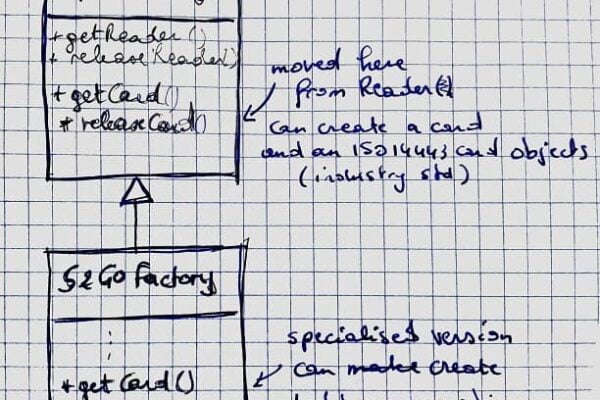 + getReader()
+ releaseReader()
+ getCard()
+ releaseCard()
moved here
from Reader
can create a card
and an ISO14443 card objects
(industry std)
S2Go Factory
+ getCard()
specialised version
can make create